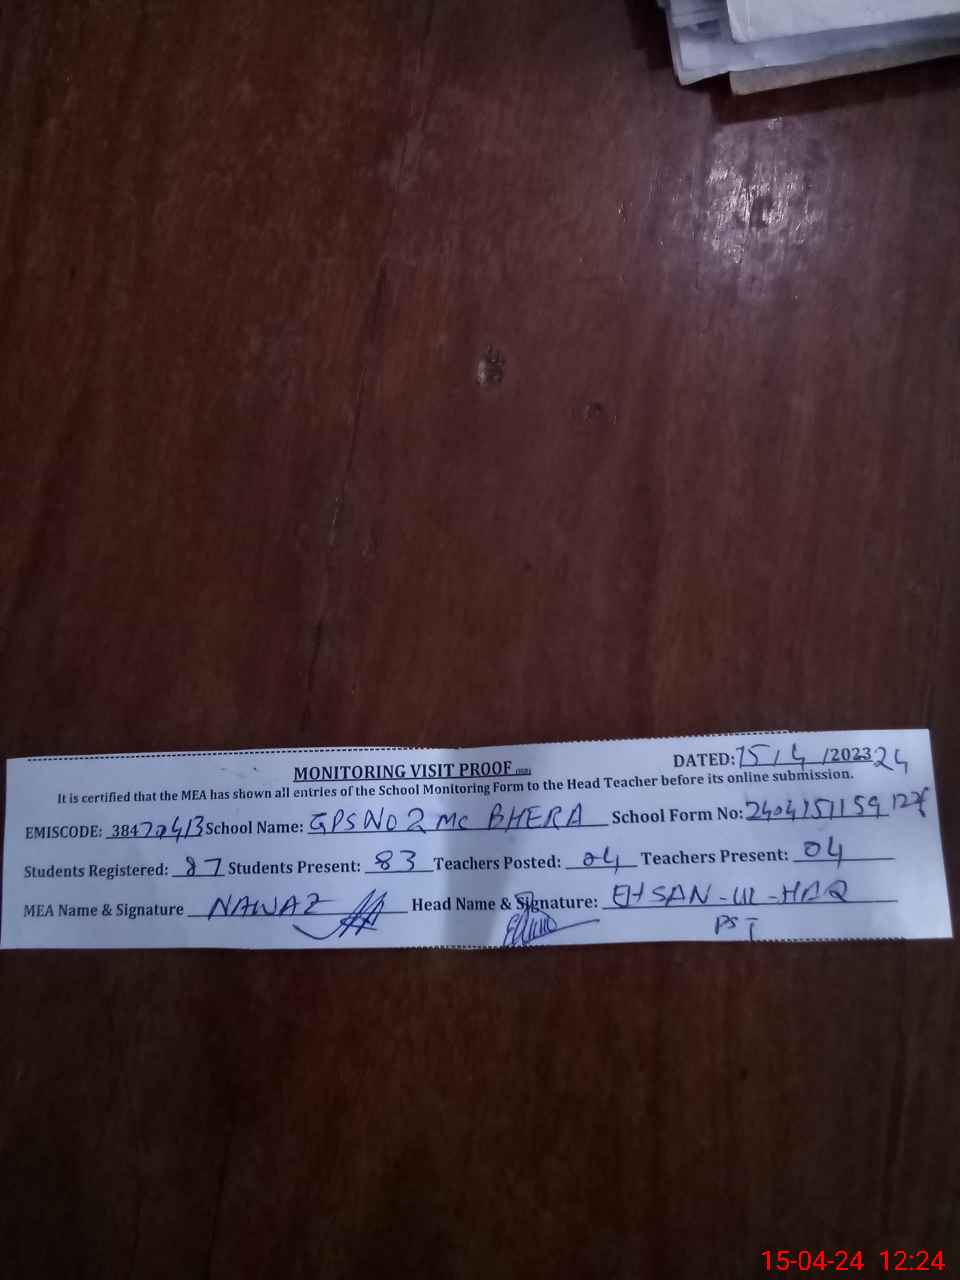 MONITORING VISIT PROOF
DATED: 15/4/202324
It is certified that the MEA has shown all entries of the School Monitoring Form to the Head Teacher before its online submission.
EMISCODE: 384 School Name: GPS NO 2 MC BHERA School Form No:
Students Registered: 87 Students Present: 83 Teachers Posted: 04 Teachers Present: 04
MEA Name & Signature NAWAZ Head Name & Signature: EHSAN-UL-HAQ
PST
15-04-24 12:24